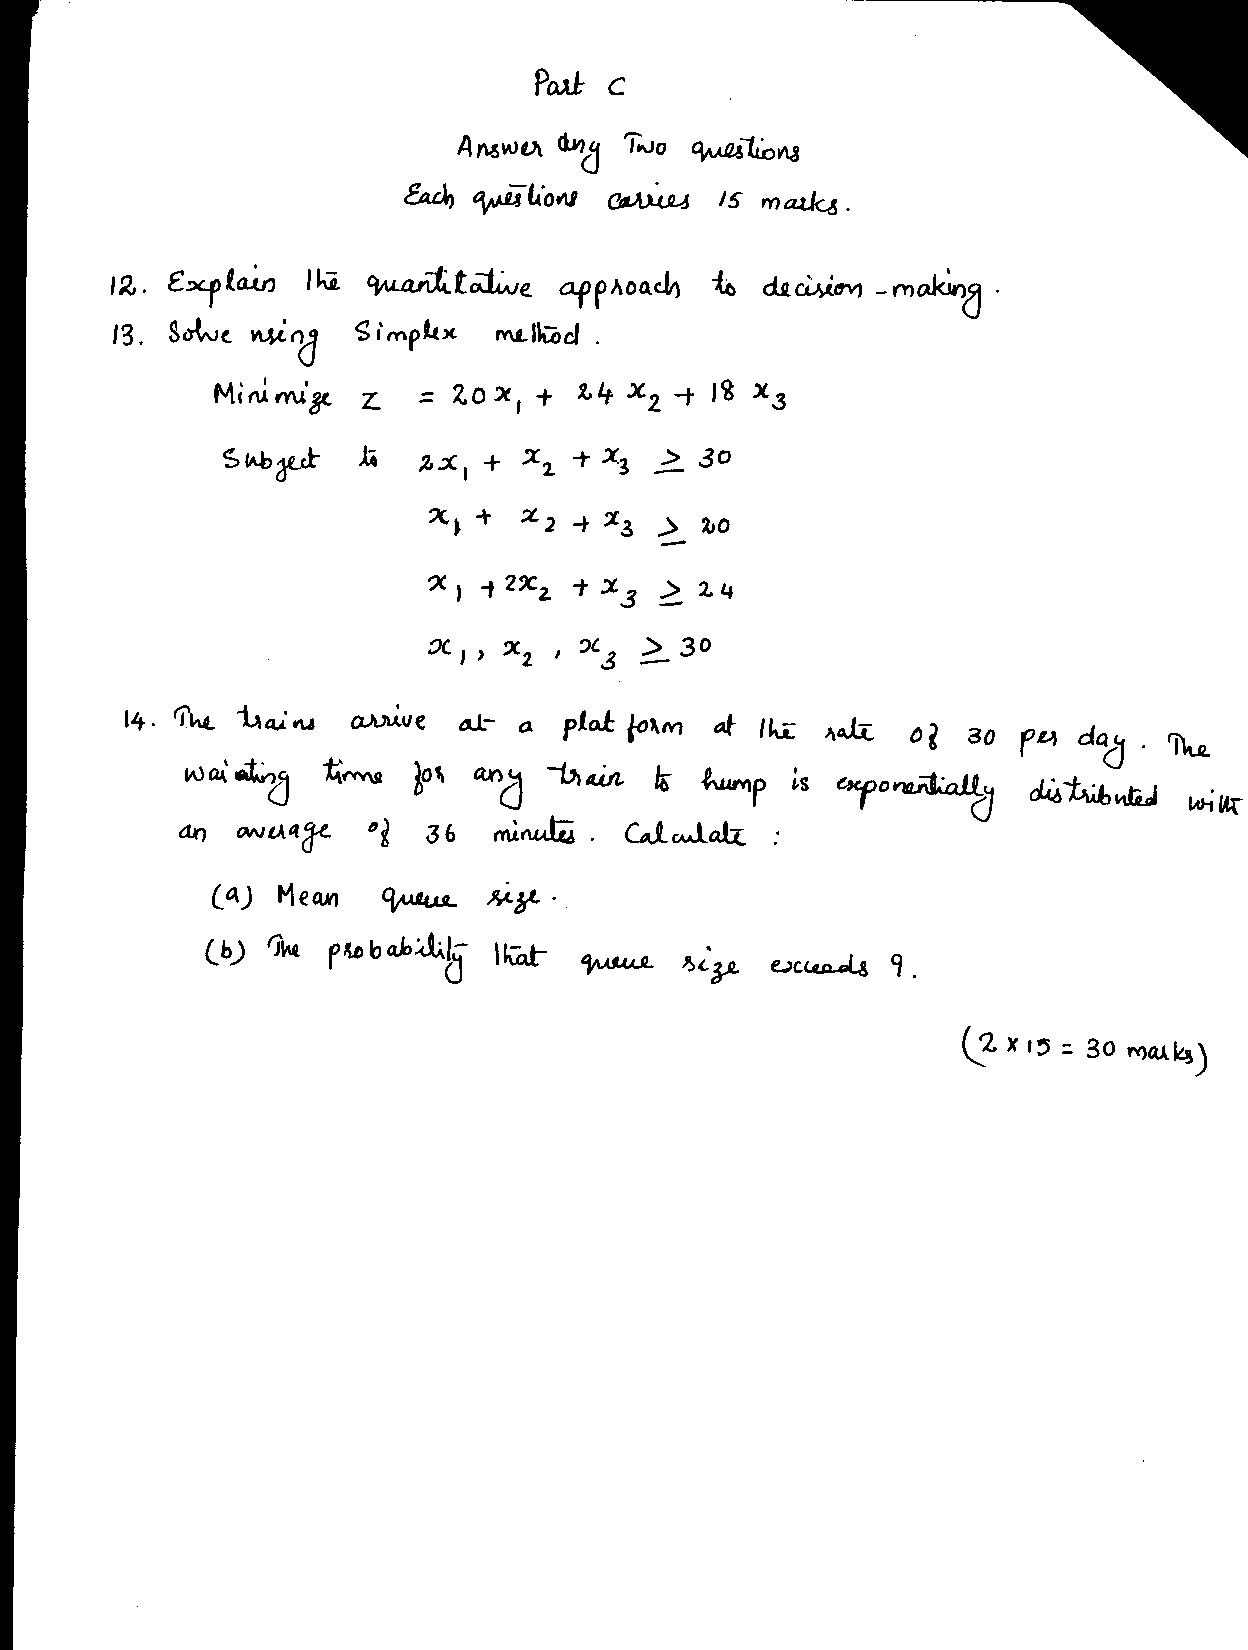 Part C
Answer any Two questions
Each questions carries 15 marks.
12. Explain the quantitative approach to decision-making.
13. Solve using Simplex method.
Minimize Z = 20x₁ + 24x₂ + 18x₃
Subject to 2x₁ + x₂ + x₃ ≥ 30
x₁ + x₂ + x₃ ≥ 20
x₁ + 2x₂ + x₃ ≥ 24
x₁, x₂, x₃ ≥ 30
14. The trains arrive at a platform at the rate of 30 per day. The
waiating time for any train to hump is exponentially distributed with
an average of 36 minutes. Calculate :
(a) Mean queue size.
(b) The probability that queue size exceeds 9.
(2 x 15 = 30 marks)